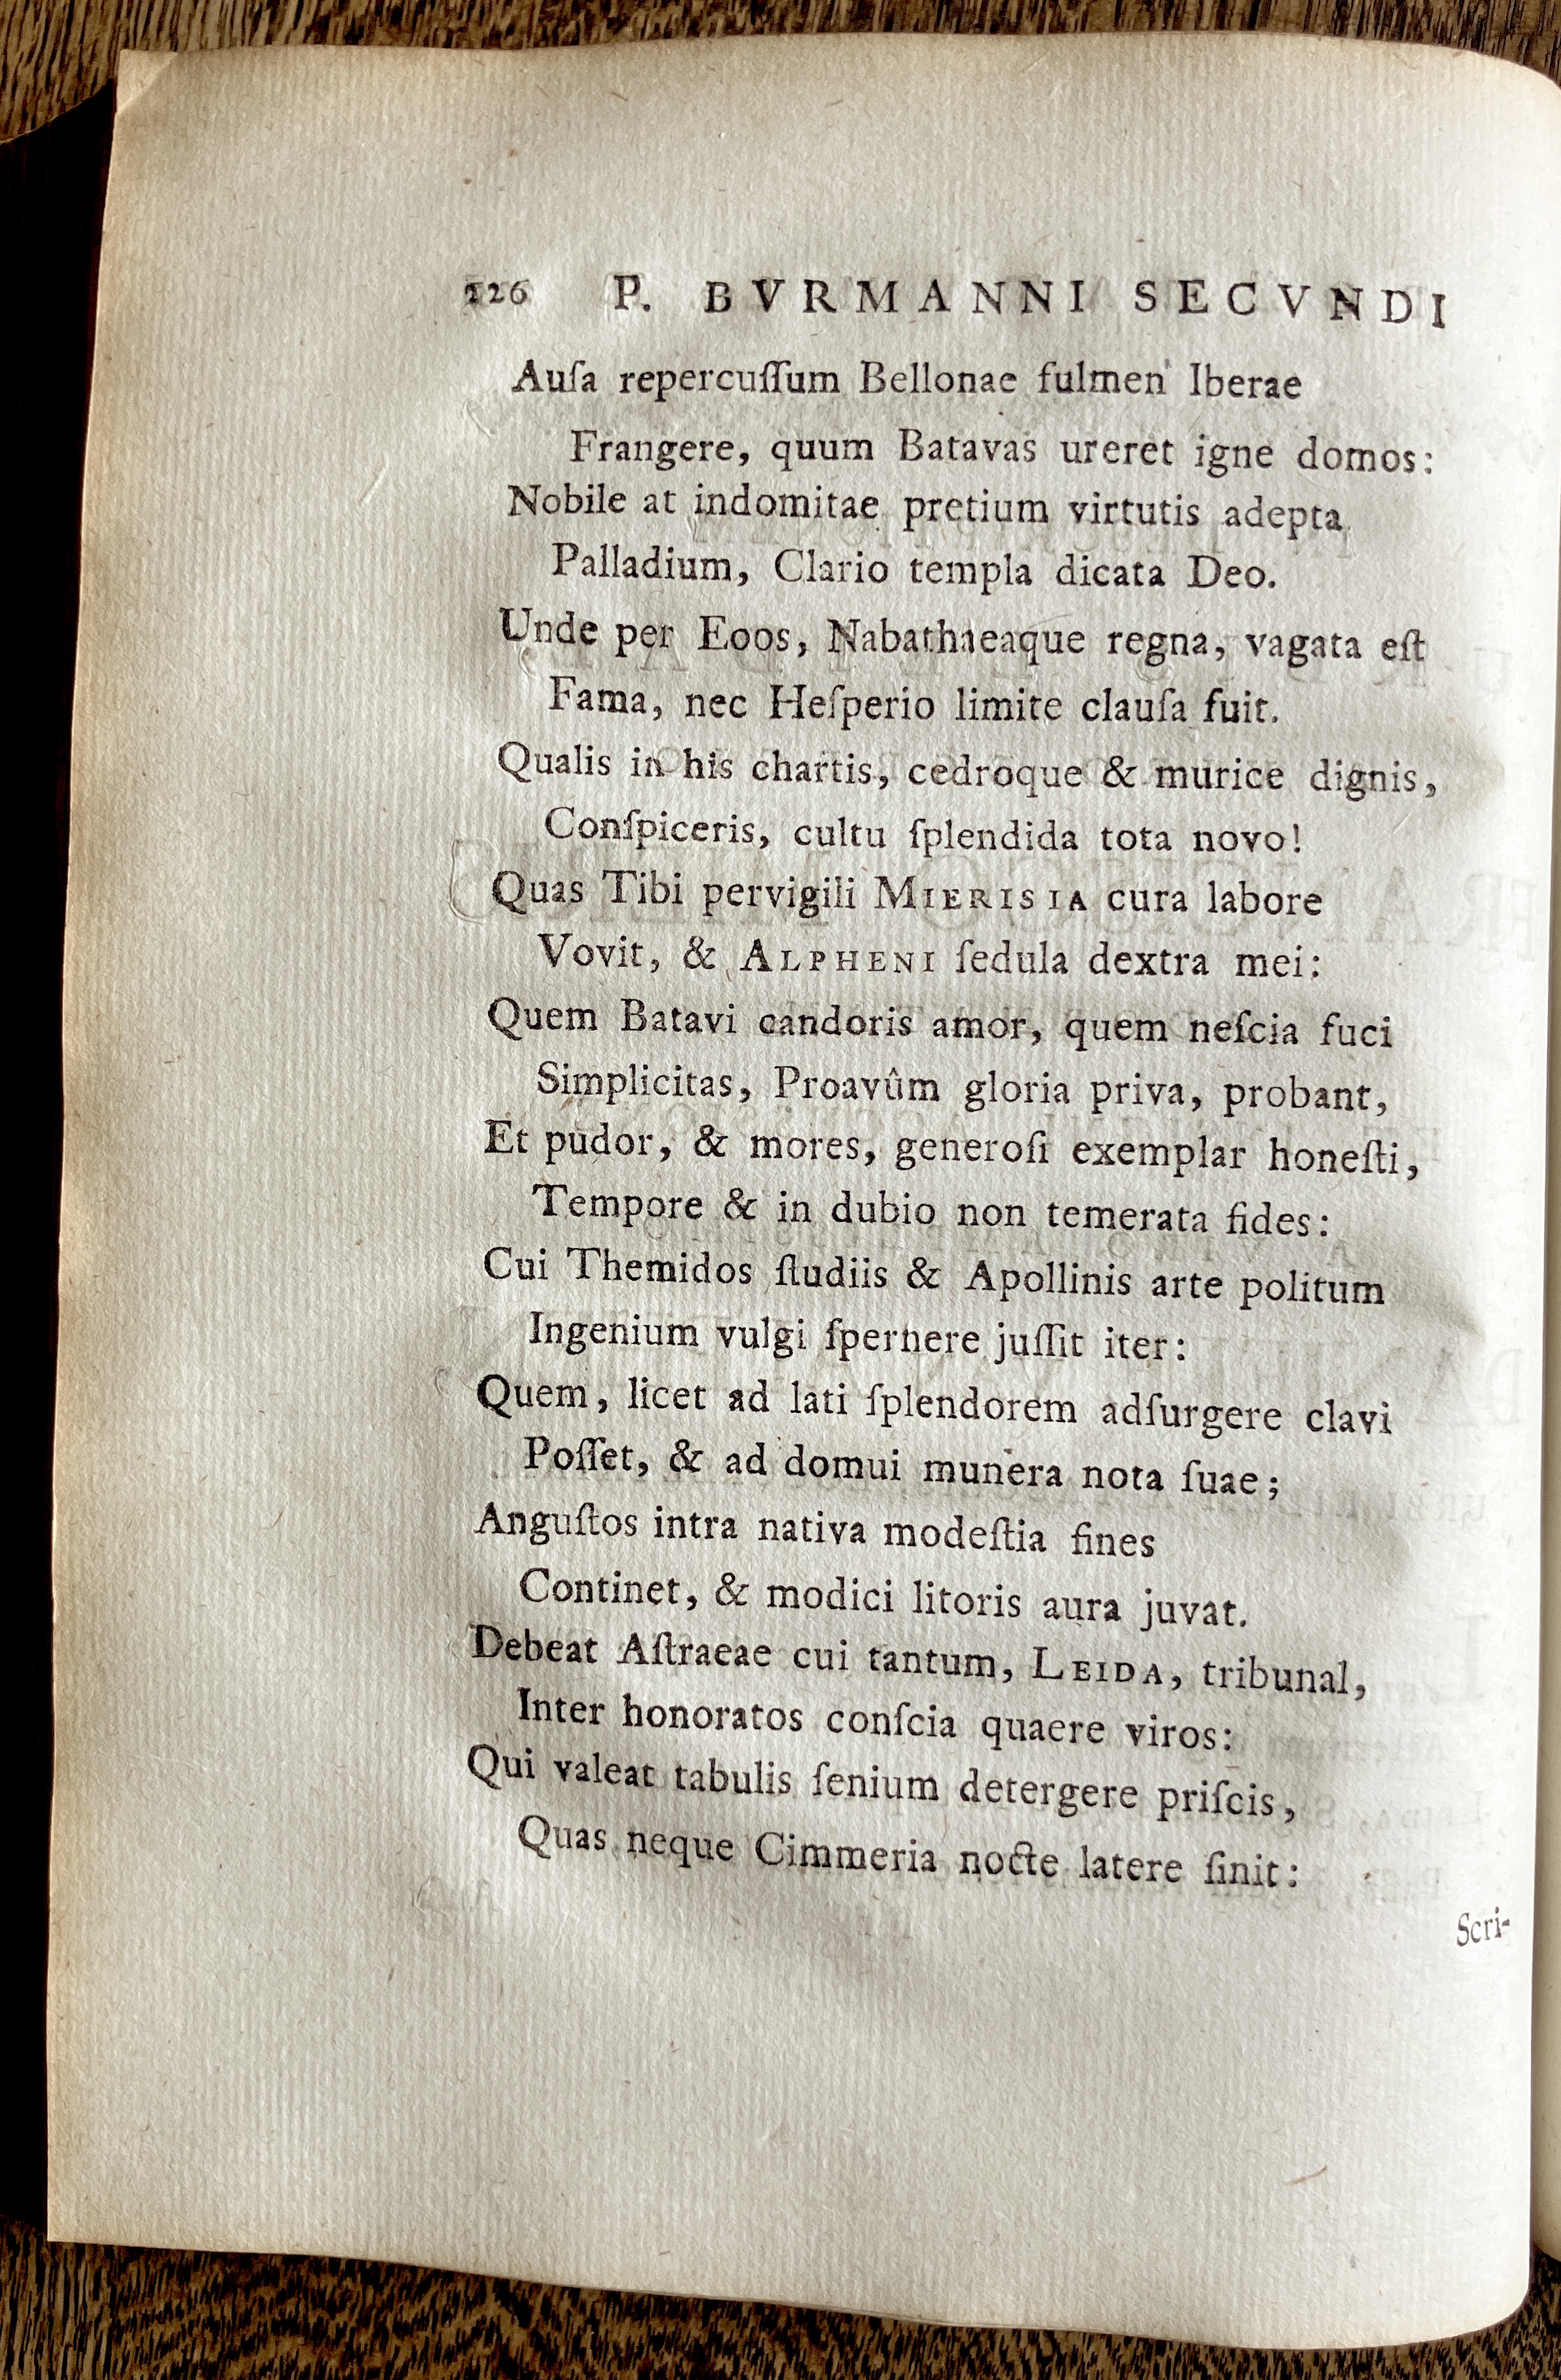 126 P. BVRMANNI SECVNDI
Auſa repercuſſum Bellonae fulmen Iberae
Frangere, quum Batavas ureret igne domos:
Nobile at indomitae pretium virtutis adepta
Palladium, Clario templa dicata Deo.
Unde per Eoos, Nabathaeaque regna, vagata eſt
Fama, nec Heſperio limite clauſa fuit.
Qualis in his chartis, cedroque & murice dignis,
Conſpiceris, cultu ſplendida tota novo!
Quas Tibi pervigili MIERISIA cura labore
Vovit, & ALPHENI ſedula dextra mei:
Quem Batavi candoris amor, quem neſcia fuci
Simplicitas, Proavûm gloria priva, probant,
Et pudor, & mores, generoſi exemplar honeſti,
Tempore & in dubio non temerata fides:
Cui Themidos ſtudiis & Apollinis arte politum
Ingenium vulgi ſpernere juſſit iter:
Quem, licet ad lati ſplendorem adſurgere clavi
Poſſet, & ad domui munera nota ſuae;
Anguſtos intra nativa modeſtia fines
Continet, & modici litoris aura juvat.
Debeat Aſtraeae cui tantum, LEIDA, tribunal,
Inter honoratos conſcia quaere viros:
Qui valeat tabulis ſenium detergere priſcis,
Quas neque Cimmeria nocte latere ſinit:
Scri-